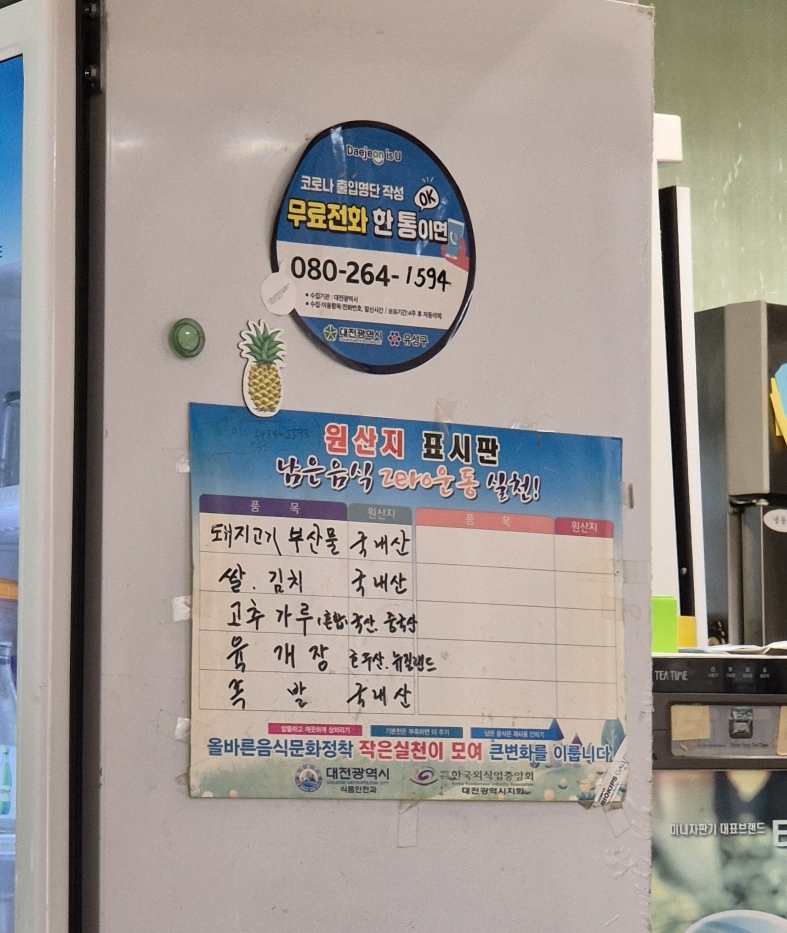 Daejeon is U
코로나 출입명단 작성
OK
무료전화 한 통이면
080-264-1594
• 수집기관 : 대전광역시
• 수집·이용항목:전화번호, 발신시간 / 보유기간:4주 후 자동삭제
대전광역시 유성구
원산지 표시판
남은음식 zero운동 실천!
품 목 원산지 품 목 원산지
돼지고기 부산물 국내산
쌀. 김치 국내산
고추 가루(혼합) 국산. 중국산
육 개 장 호주산. 뉴질랜드
족 발 국내산
알뜰하고 깨끗하게 상차리기 기본찬은 부족하면 더 주기 남은 음식은 재사용 안하기
올바른음식문화정착 작은실천이 모여 큰변화를 이룹니다
대전광역시 한국외식업중앙회
식품안전과 대전광역시지회
TEA TIME
미니자판기 대표브랜드